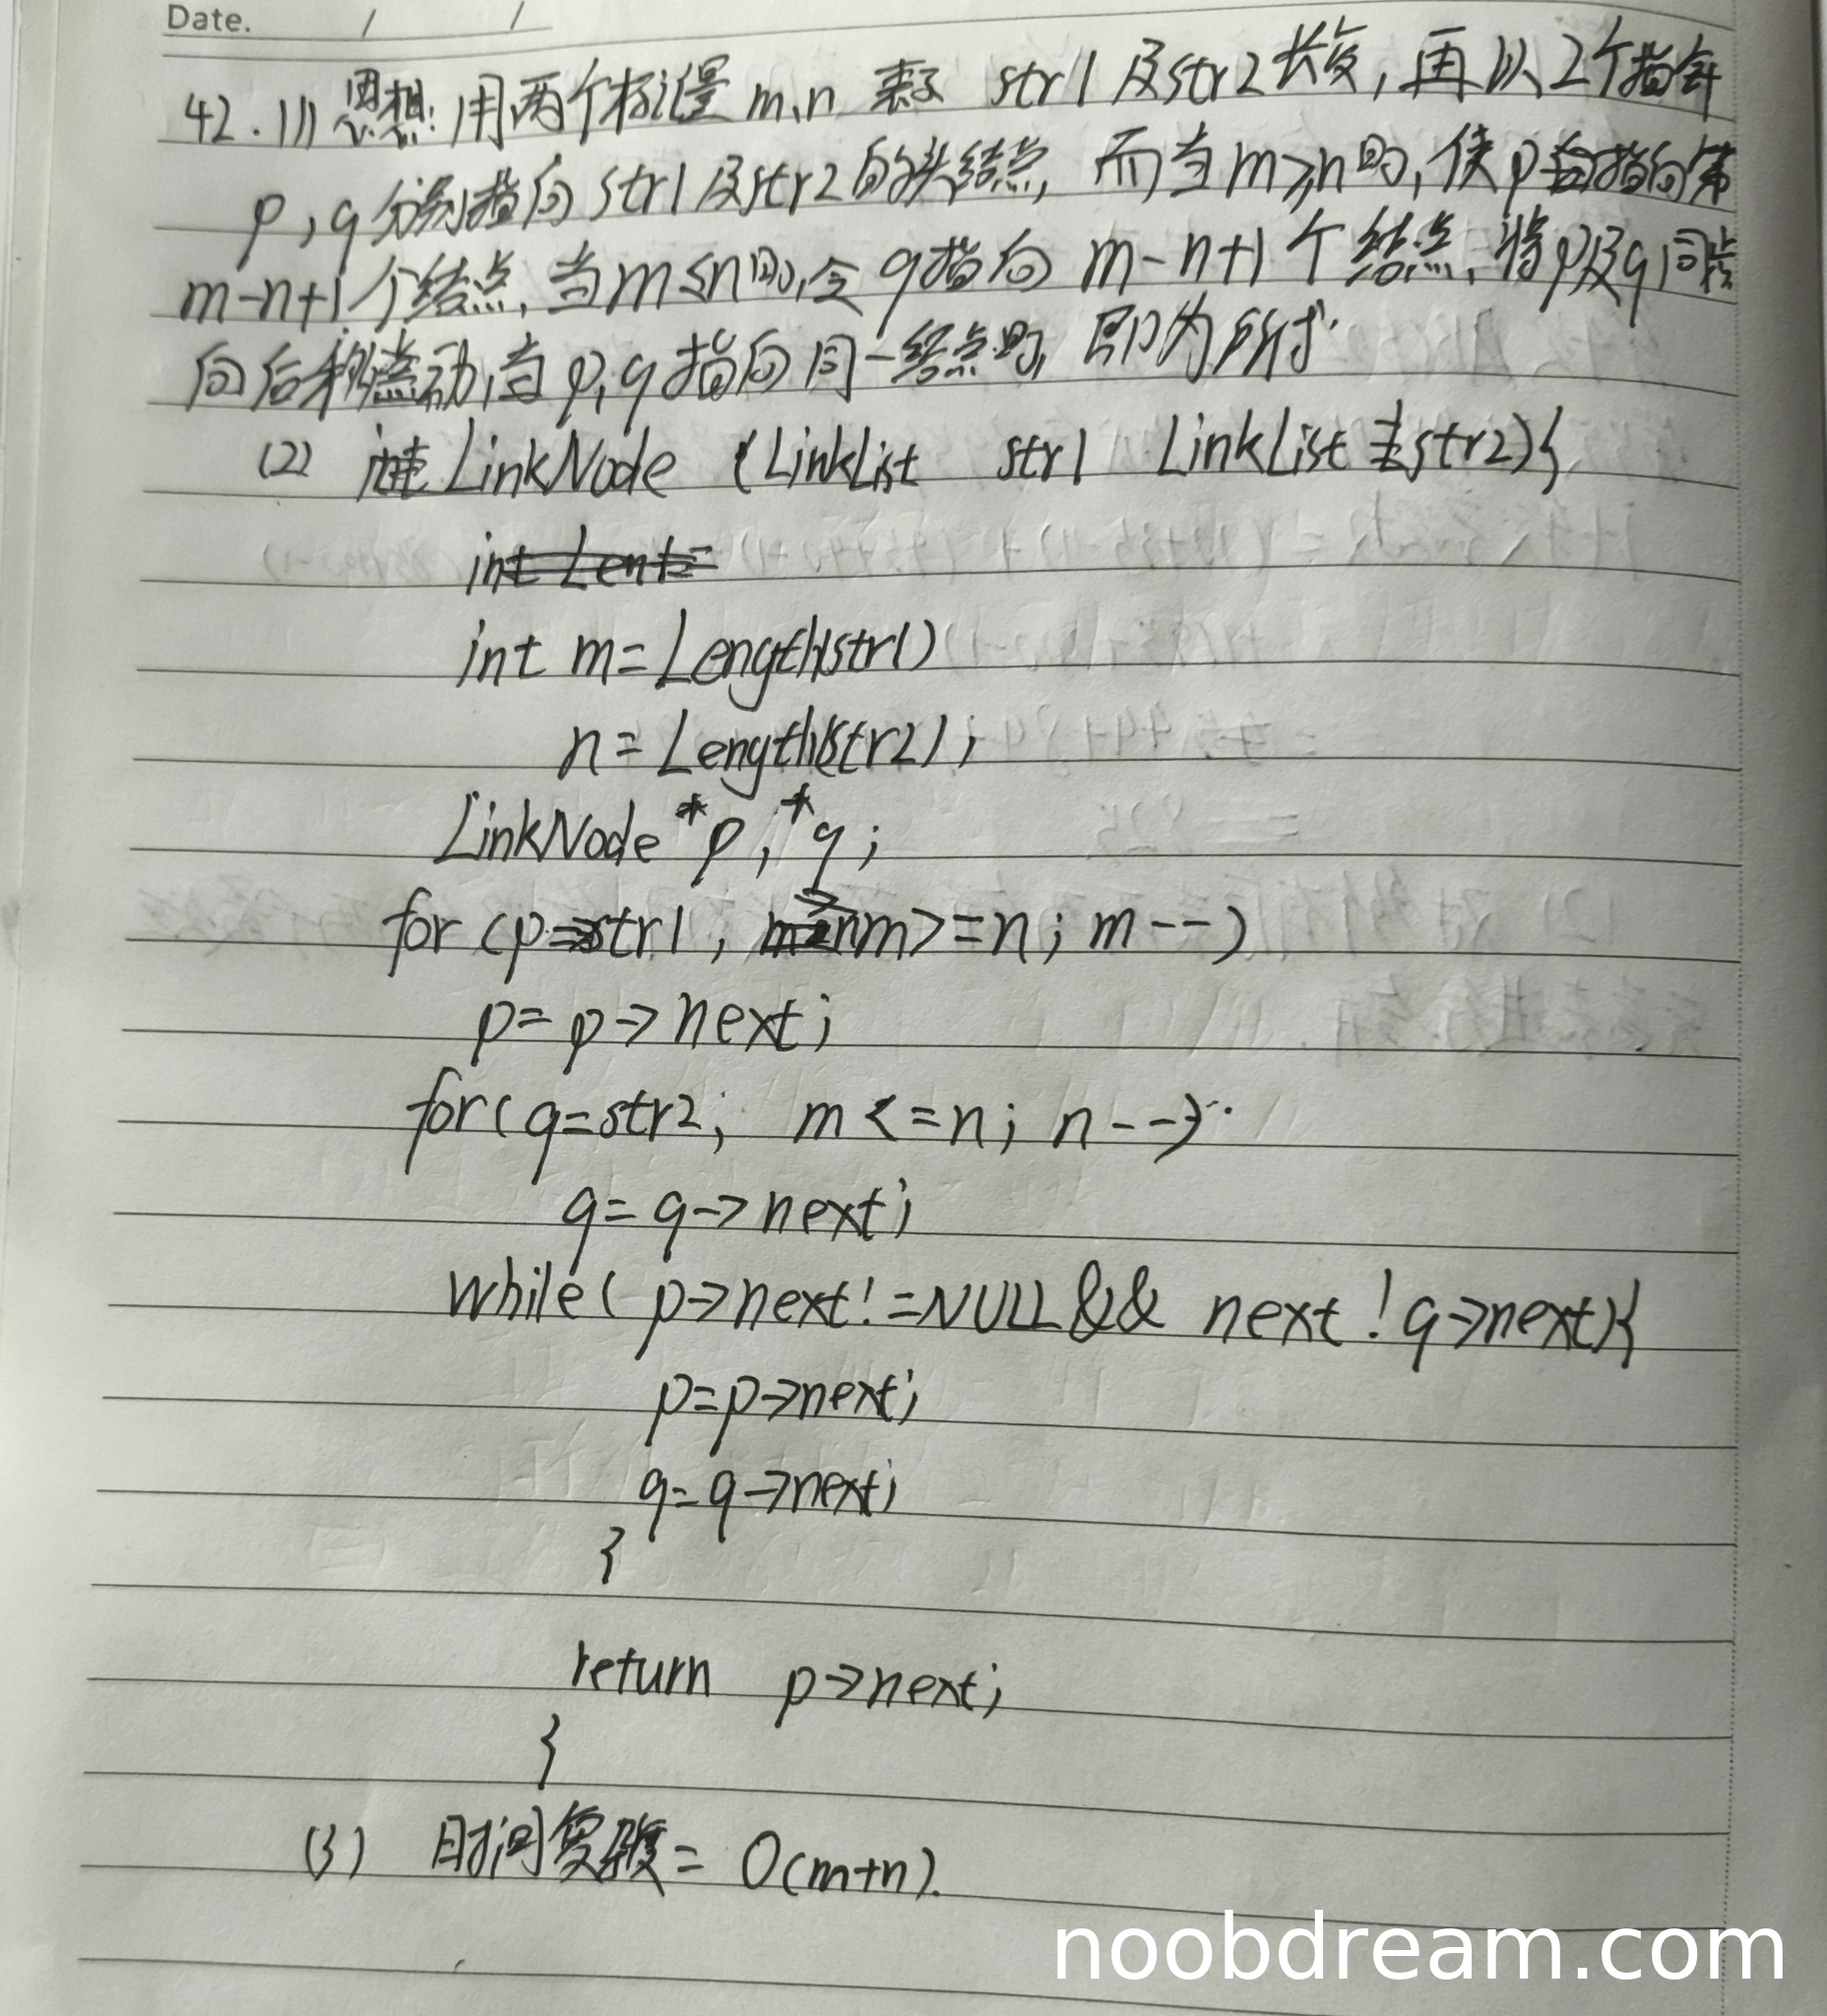 Date. / /
42.(1) 思想:用两个标记量 m、n 表示 str1 及str2 长度,再以2个指针
p,q分别指向 str1及str2的头结点,而当m≥n时,使p指向第
m-n+1个结点,当m≤n时,令q指向 m-n+1个结点,将p及q同步
向后移动,当p,q指向同一结点时,即为所求.
(2) LinkNode (LinkList str1 LinkList str2){
int Len1=
int m=Length(str1)
n=Length(str2);
LinkNode *p,*q;
for(p=str1, m>=n; m--)
p=p->next;
for(q=str2; m<=n; n--)
q=q->next;
while( p->next!=NULL&& next!q->next){
p=p->next;
q=q->next;
}
return p->next;
}
(3) 时间复杂度= O(m+n).
noobdream.com